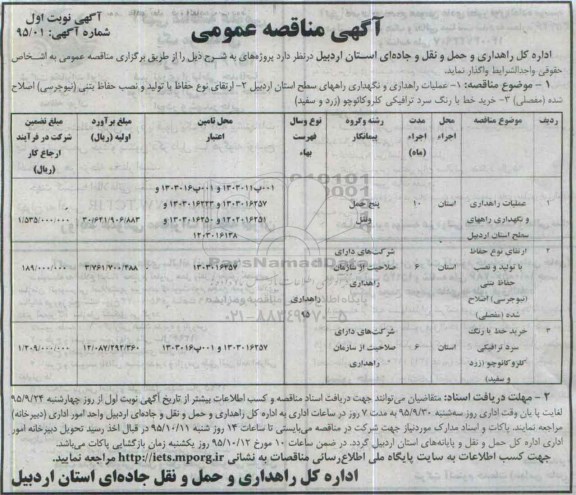 آگهی مناقصه عمومی
آگهی نوبت اول
شماره آگهی: ۹۵/۰۱
اداره کل راهداری و حمل و نقل و جاده‌ای استان اردبیل درنظر دارد پروژه‌های به شرح ذیل را از طریق برگزاری مناقصه عمومی به اشخاص
حقوقی واجدالشرایط واگذار نماید.
۱ – موضوع مناقصه: ۱- عملیات راهداری و نگهداری راههای سطح استان اردبیل ۲- ارتقای نوع حفاظ با تولید و نصب حفاظ بتنی (نیوجرسی) اصلاح
شده (مفصلی) ۳- خرید خط با رنگ سرد ترافیکی کلروکائوچو (زرد و سفید)
ردیف موضوع مناقصه محل اجراء مدت اجراء (ماه) رشته وگروه پیمانکار نوع وسال فهرست بهاء محل تامین اعتبار مبلغ برآورد اولیه (ریال) مبلغ تضمین شرکت در فرآیند ارجاع کار (ریال)
۱ عملیات راهداری و نگهداری راههای سطح استان اردبیل استان ۱۰ پنج حمل ونقل ۳۰/۶۲۱/۹۰۶/۸۸۳ ۱/۵۳۵/۰۰۰/۰۰۰
۲ ارتقای نوع حفاظ با تولید و نصب حفاظ بتنی (نیوجرسی) اصلاح شده (مفصلی) استان ۶ شرکت‌های دارای صلاحیت از سازمان راهداری راهداری ۹۵ ۱۳۰۳۰۱۶۲۵۷ ۳/۷۶۱/۷۰۰/۴۸۸ ۱۸۹/۰۰۰/۰۰۰
۳ خرید خط با رنگ سرد ترافیکی کلروکائوچو (زرد و سفید) استان ۶ شرکت‌های دارای صلاحیت از سازمان راهداری ۱۳۰۳۰۱۶۲۵۷ و ۰۰۱ب۱۳۰۳۰۱۶ ۱۲/۰۸۷/۲۹۲/۳۶۰ ۱/۲۰۹/۰۰۰/۰۰۰
۲ – مهلت دریافت اسناد: متقاضیان می‌توانند جهت دریافت اسناد مناقصه و کسب اطلاعات بیشتر از تاریخ آگهی نوبت اول از روز چهارشنبه ۹۵/۹/۲۴
لغایت پایان وقت اداری روز سه‌شنبه ۹۵/۹/۳۰ به مدت ۷ روز در ساعات اداری به اداره کل راهداری و حمل و نقل و جاده‌ای اردبیل واحد امور اداری (دبیرخانه)
مراجعه نمایند. پاکات و اسناد مدارک موردنیاز جهت شرکت در مناقصه می‌بایستی تا ساعات ۱۴ روز شنبه ۹۵/۱۰/۱۱ در قبال اخذ رسید تحویل دبیرخانه امور
اداری اداره کل حمل و نقل و پایانه‌های استان اردبیل گردد. در ضمن ساعات ۱۰ مورخ ۹۵/۱۰/۱۲ روز یکشنبه زمان بازگشایی پاکات می‌باشد.
جهت کسب اطلاعات به سایت پایگاه ملی اطلاع‌رسانی مناقصات به نشانی http://iets.mporg.ir مراجعه نمایید.
اداره کل راهداری و حمل و نقل جاده‌ای استان اردبیل
ParsNamadData